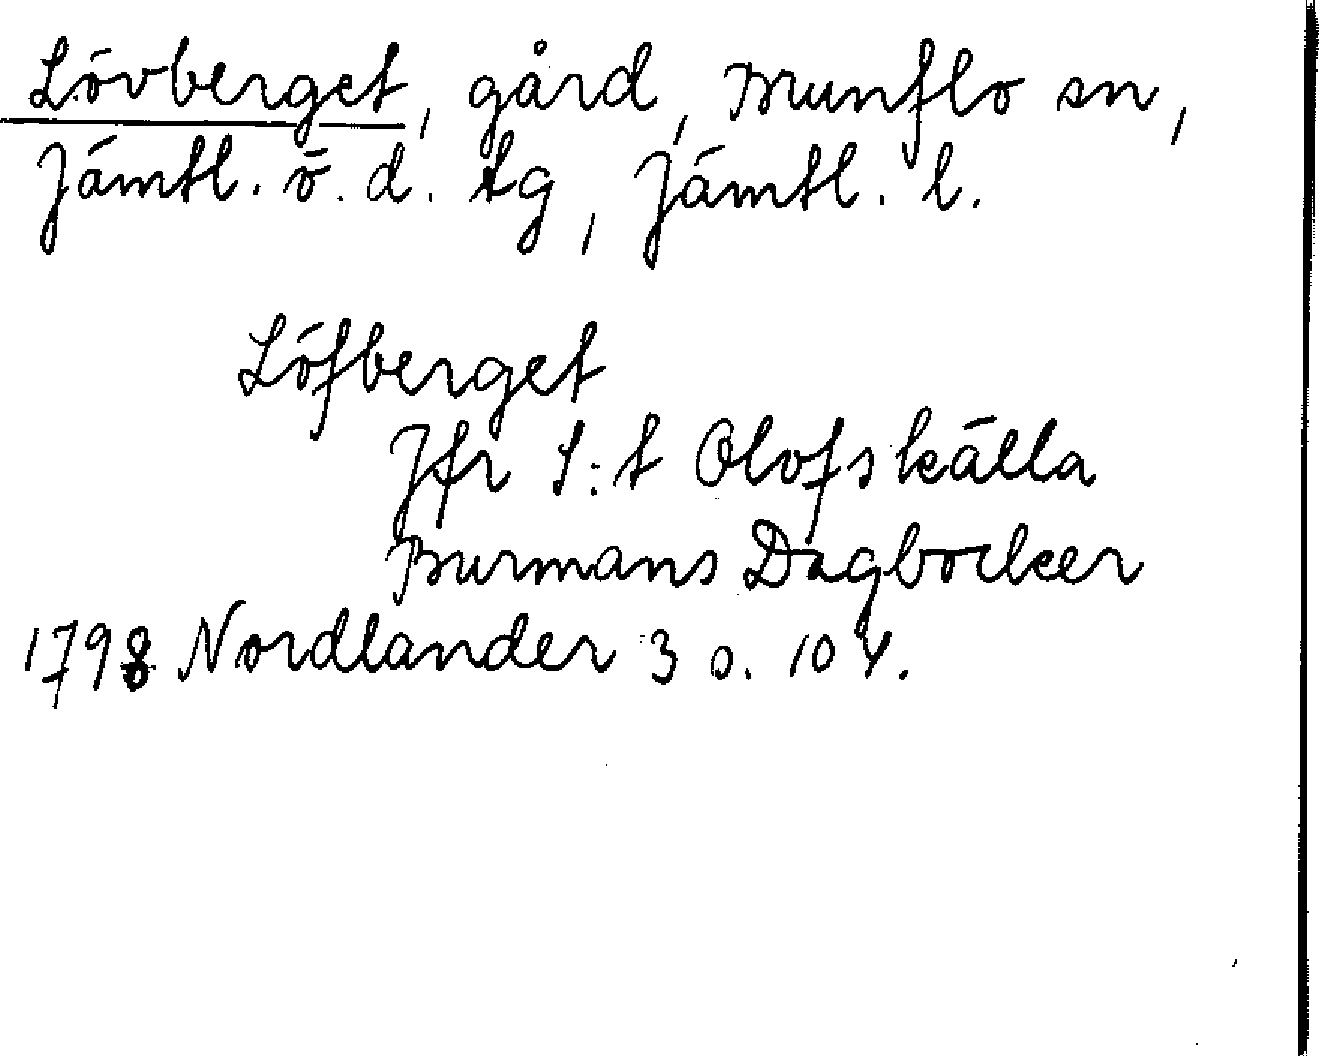 Lövberget, gård, Brunflo sn,
Jämtl. ö. d. tg, Jämtl. l.
Löfberget
Jfr S:t Olofskälla
Burmans Dagböcker
1798 Nordlander 3 s. 104.